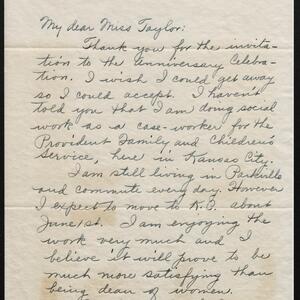 My dear Miss Taylor:
Thank you for the invita-
tion to the Anniversary Celebra-
tion. I wish I could get away
so I could accept. I haven't
told you that I am doing social
work as a case-worker for the
Provident Family and Children's
Service, here in Kansas City.
I am still living in Parkville
and commute every day. However
I expect to move to K.C. about
June 1st. I am enjoying the
work very much and I
believe it will prove to be
much more satisfying than
being dean of women.